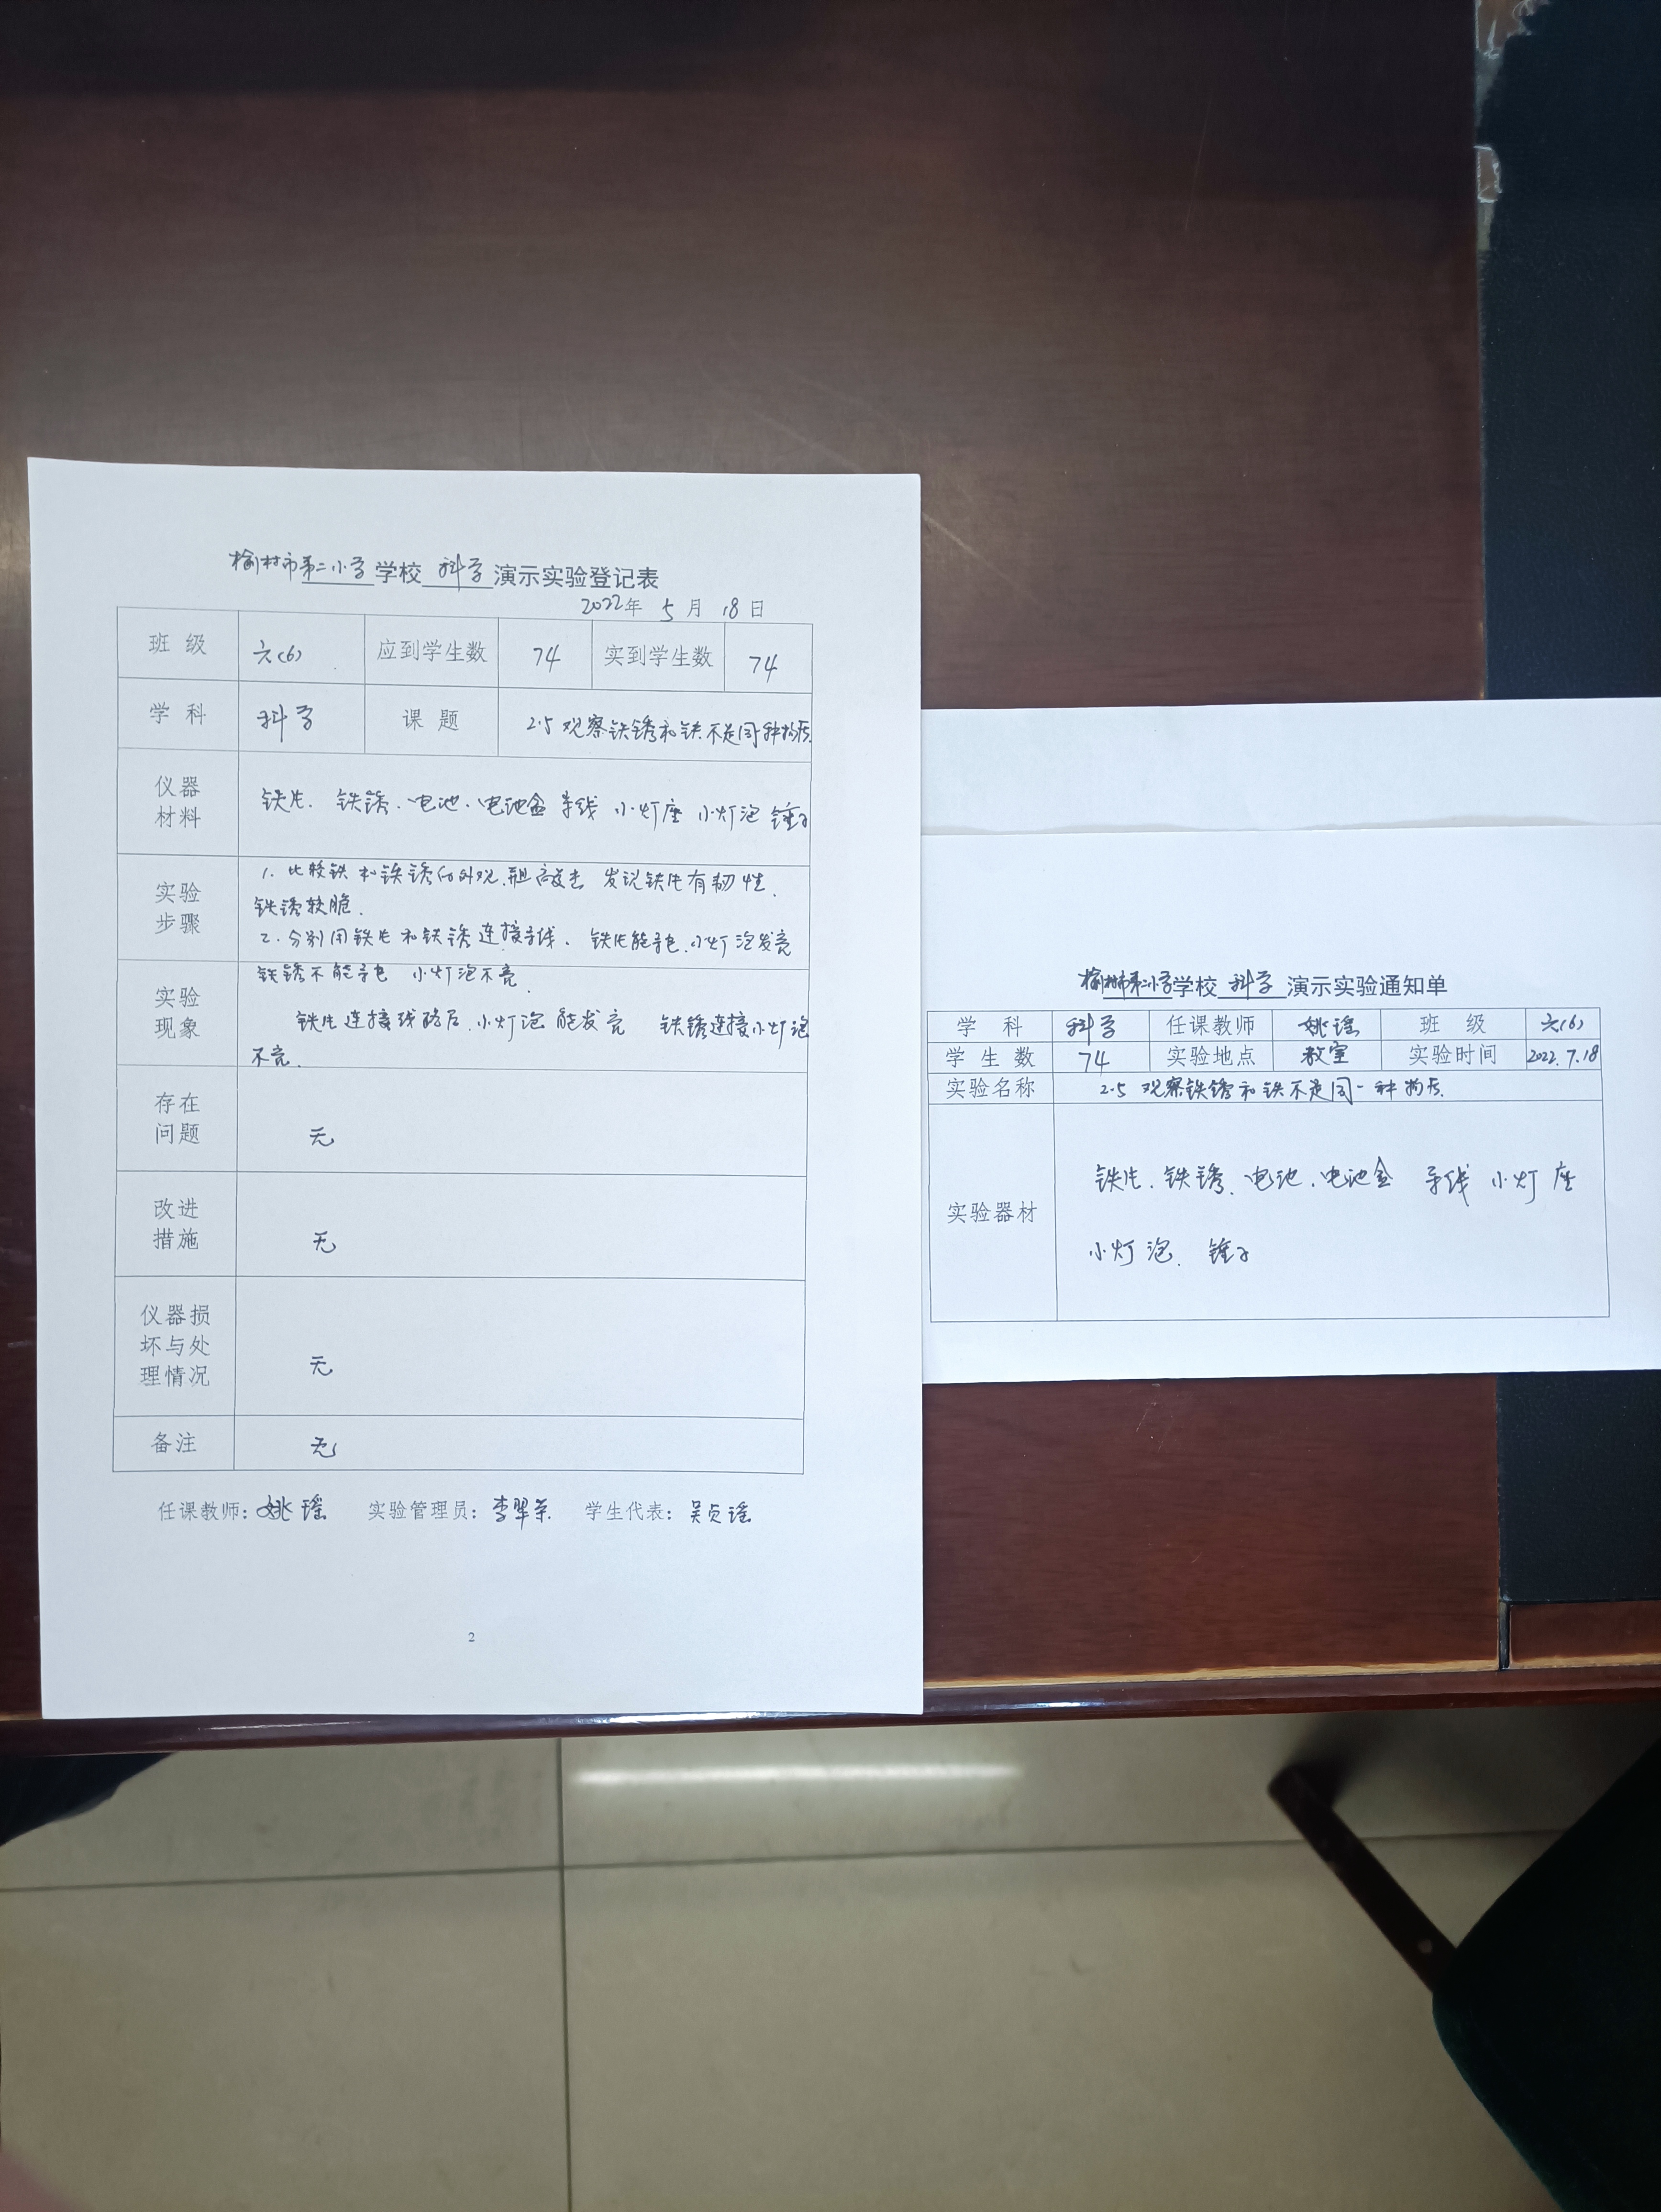 榆林市第二小学学校 科学 演示实验登记表
2022年 5月 18日
班级 六(6) 应到学生数 74 实到学生数 74
学科 科学 课题 2.5 观察铁锈和铁不是同种物质
仪器材料 铁片. 铁锈. 电池. 电池盒 导线 小灯座 小灯泡 锤子
实验步骤 1. 比较铁和铁锈的外观. 敲击 发现铁片有韧性.
铁锈较脆.
2. 分别用铁片和铁锈连接导线. 铁片能导电. 小灯泡发亮
铁锈不能导电 小灯泡不亮.
实验现象 铁片连接线路后. 小灯泡能发亮 铁锈连接小灯泡
不亮.
存在问题 无
改进措施 无
仪器损坏与处理情况 无
备注 无
任课教师：姚瑶 实验管理员：李翠荣 学生代表：吴贞瑶
2
榆林市第二小学学校 科学 演示实验通知单
学科 科学 任课教师 姚瑶 班级 六(6)
学生数 74 实验地点 教室 实验时间 2022.7.18
实验名称 2.5 观察铁锈和铁不是同一种物质.
实验器材 铁片. 铁锈. 电池. 电池盒 导线 小灯座
小灯泡. 锤子